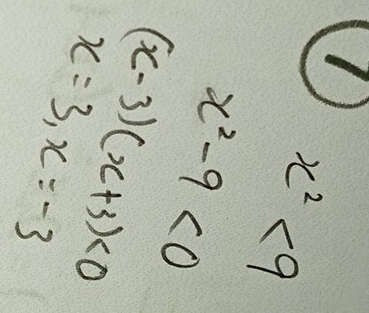 1
x² < 9
x² - 9 < 0
(x - 3)(x + 3) < 0
x = 3, x = -3